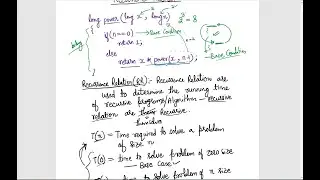 long power (long x, long n)
2³ = 8
{
if (n==0) → Base Condition
return 1;
else
return x * power(x, n-1)
}
Base Condition
Recurrence Relation (RR):- Recurrence Relation are
used to determine the running time
of recursive programs/Algorithm - recursive
relation are recursive.
T(n) = Time required to solve a problem
of size n
T(0) = time to solve problem of zero size
Base case
time to solve problem of n size